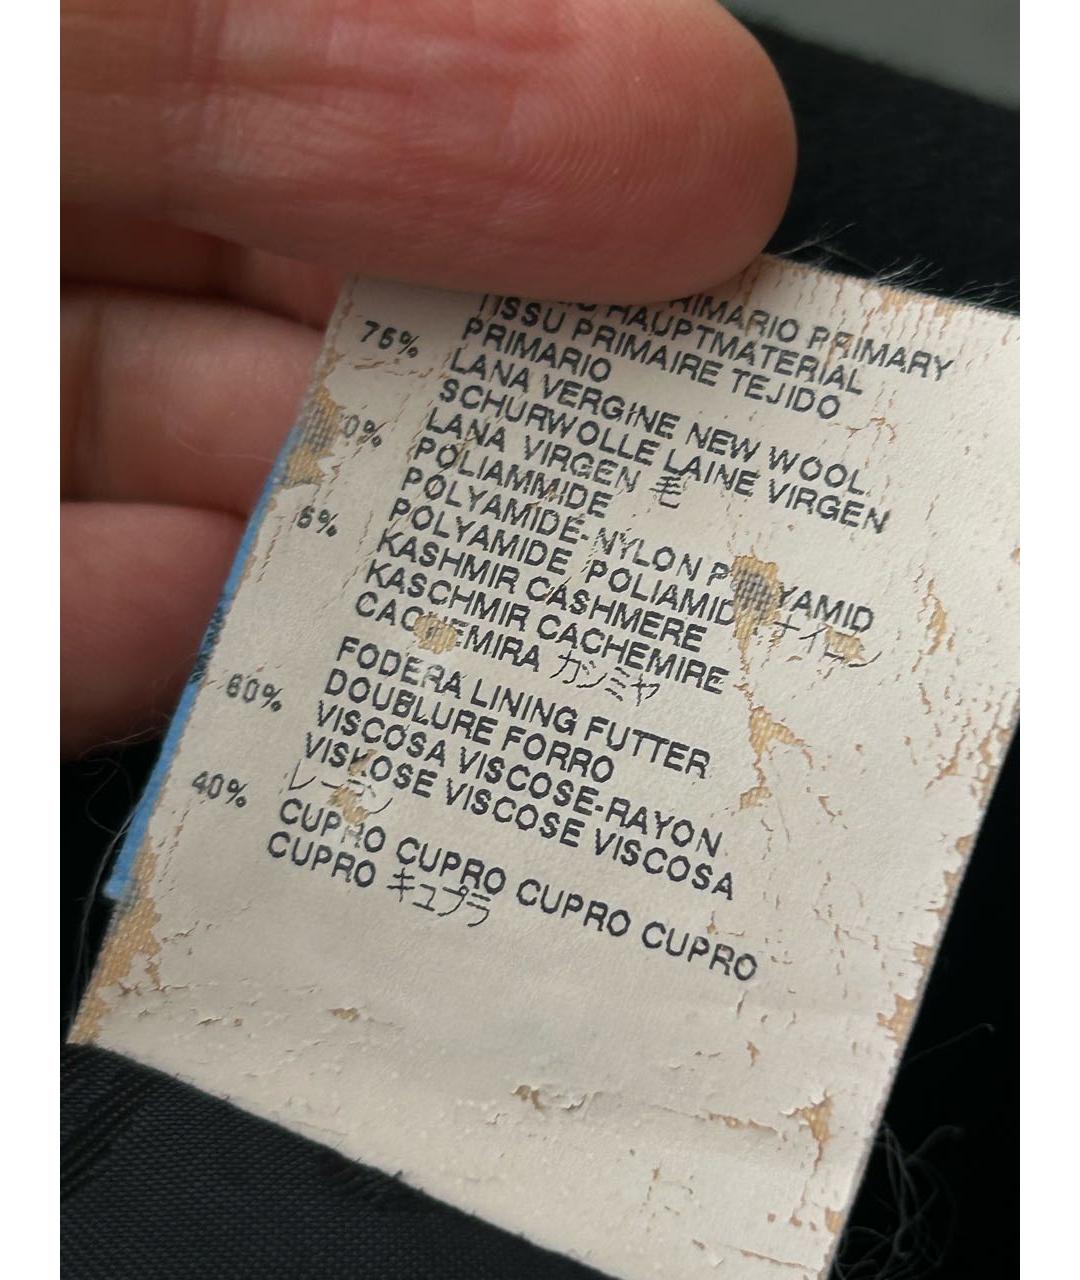 PRIMARY
HAUPTMATERIAL
TISSU PRIMAIRE TEJIDO
PRIMARIO
75% LANA VERGINE NEW WOOL
SCHURWOLLE LAINE VIRGEN
LANA VIRGEN 毛
POLIAMMIDE
POLYAMIDE-NYLON POLYAMID
POLYAMIDE POLIAMIDA ナイロン
5% KASHMIR CASHMERE
KASCHMIR CACHEMIRE
CACHEMIRA カシミヤ
FODERA LINING FUTTER
DOUBLURE FORRO
60% VISCOSA VISCOSE-RAYON
VISKOSE VISCOSE VISCOSA
レーヨン
40% CUPRO CUPRO CUPRO CUPRO
CUPRO キュプラ